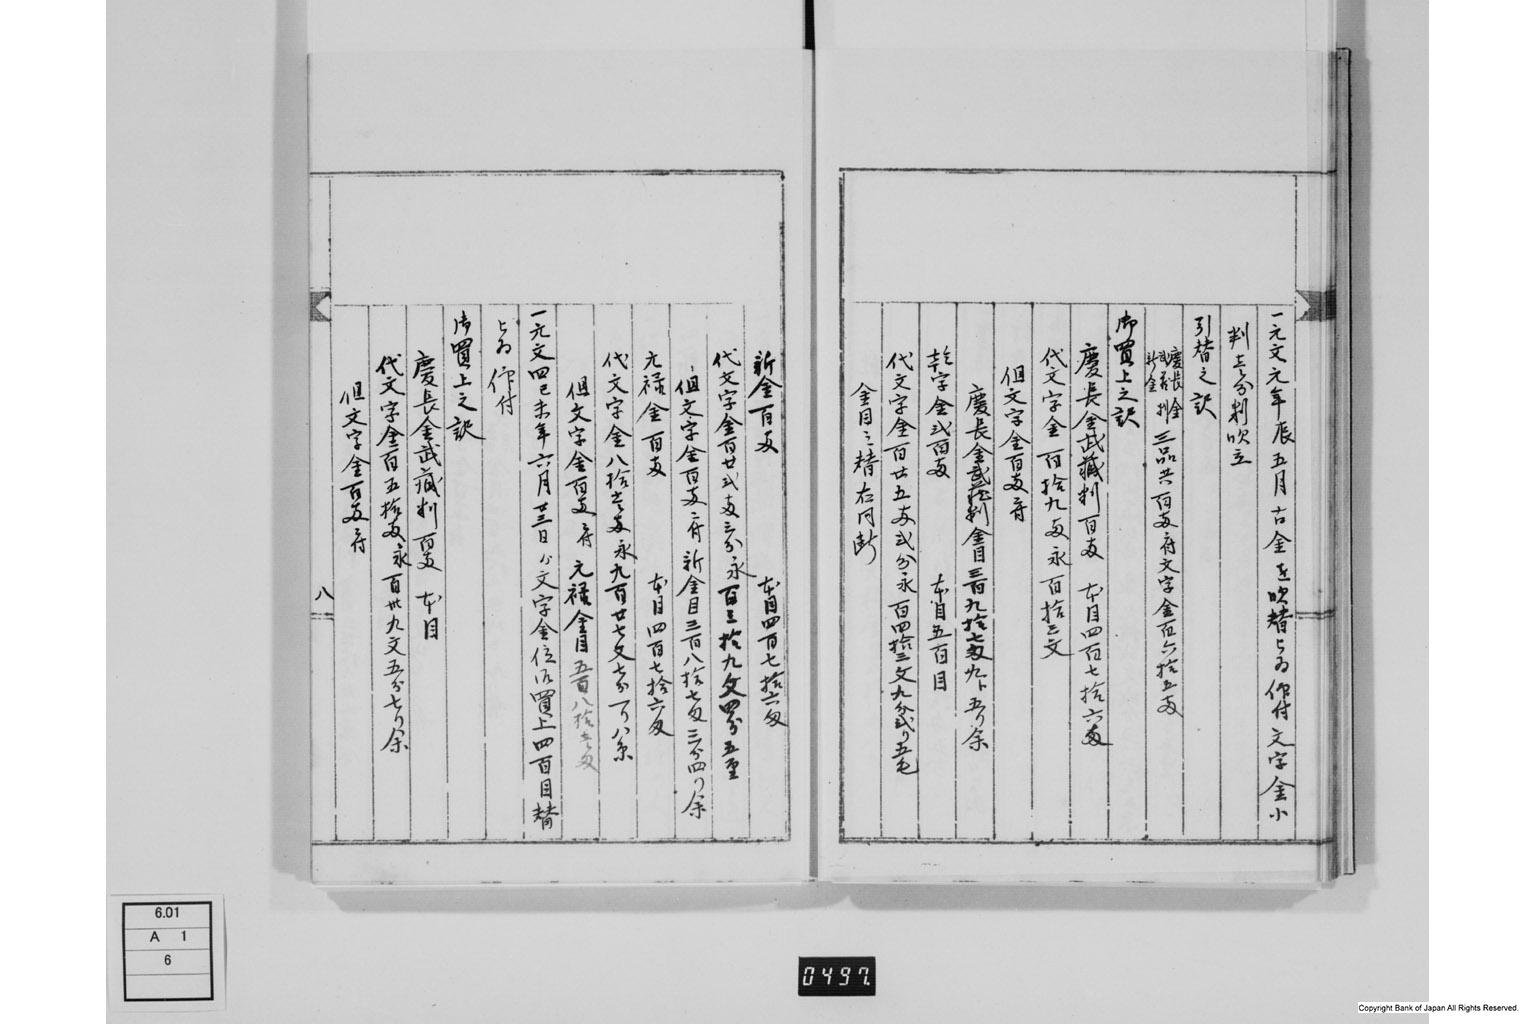 一元文元年辰五月古金銀吹替被為仰付文字金小
判壱分判吹立
引替之訳
慶長金
武蔵判
新金
三品共百両ニ付文字金百六拾五両
御買上之訳
慶長金武蔵判百両 本目四百七拾六匁
代文字金百拾九両永百拾三文
但文字金百両ニ付
慶長金武蔵判金目三百九拾七匁
乾字金弐百両 本目五百目
代文字金百廿五両弐分永百四拾三文九分弐り五毛
金目之替右同断
新金百両 本目四百七拾六匁
代文字金百廿弐両三分永百三拾九文四分五厘
但文字金百両ニ付新金目三百八拾七匁三分四り余
元禄金百両 本目四百七拾六匁
代文字金八拾壱両永九百廿七文七分一り八糸
但文字金百両ニ付元禄金目五百八拾壱匁
一元文四己未年六月廿三日ゟ文字金位御買上四百目替
被為仰付
御買上之訳
慶長金武蔵判百両 本目
代文字金百五拾両永百卅九文五分七り余
但文字金百両ニ付
八
6.01
A 1
6
0497.
Copyright Bank of Japan All Rights Reserved.